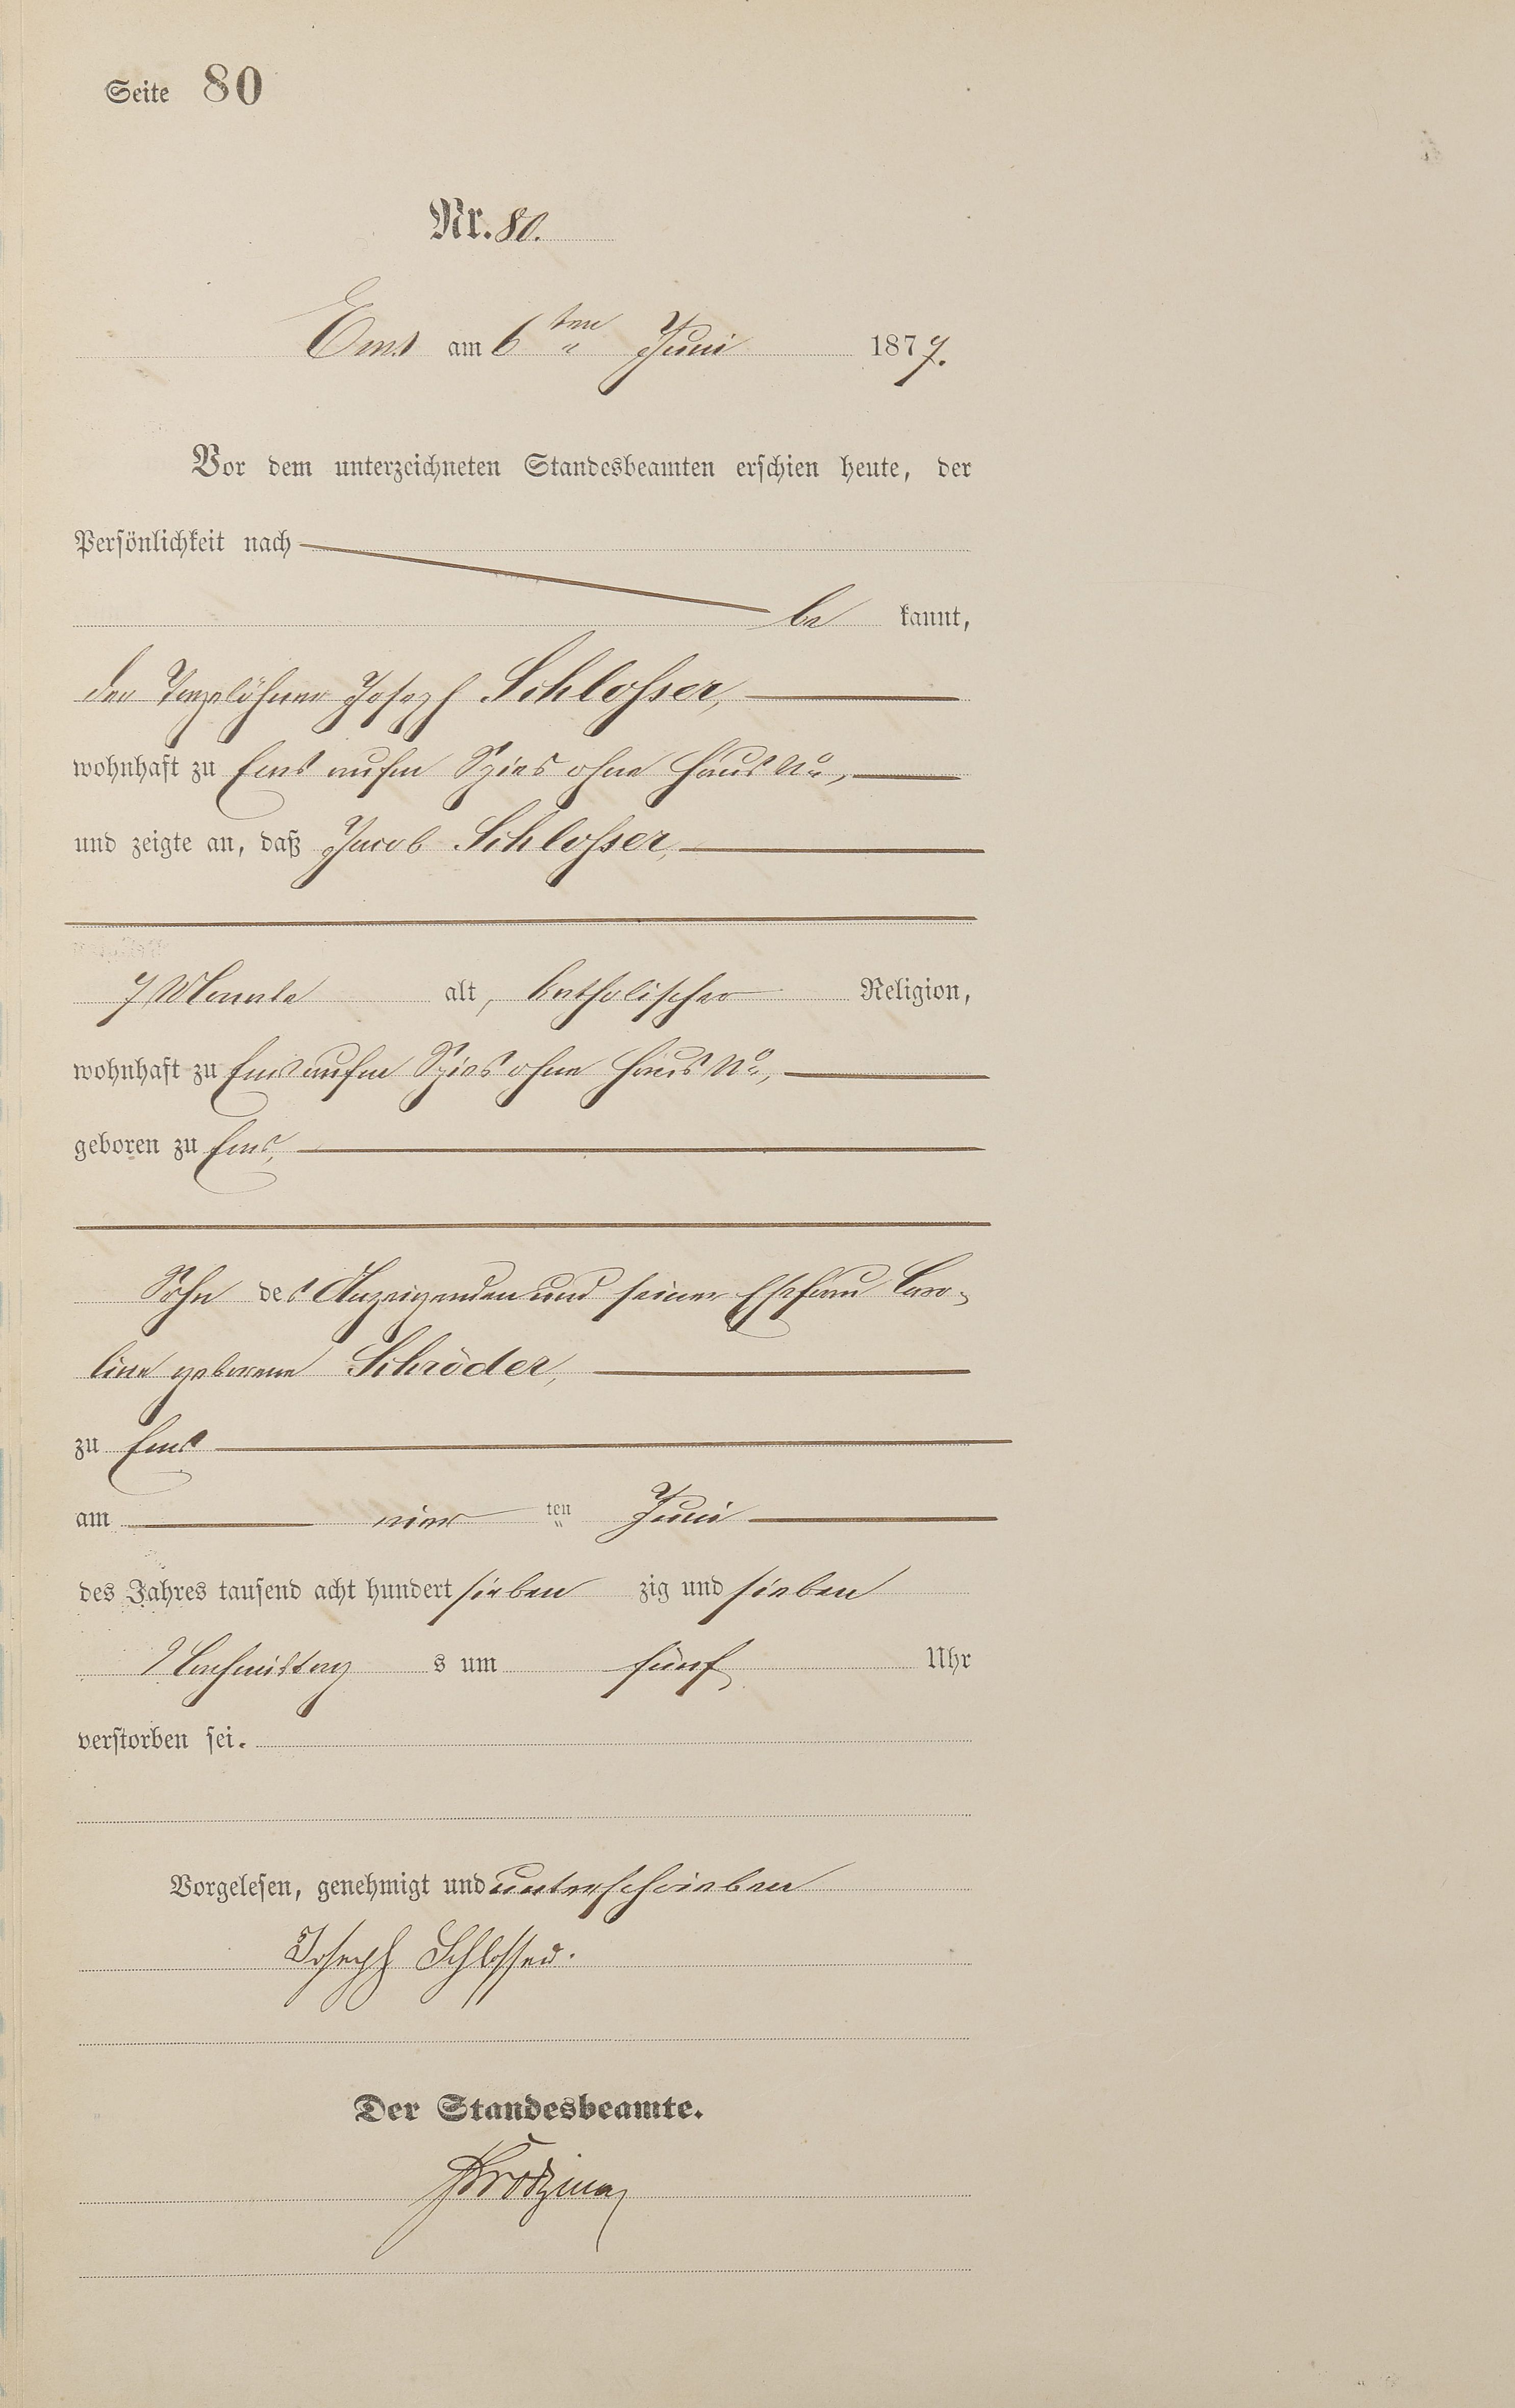 Seite 80
Nr. 80.
Ems am 6ten Juni 1877.
Vor dem unterzeichneten Standesbeamten erschien heute, der
Persönlichkeit nach
be kannt,
der Taglöhner Joseph Schlosser,
wohnhaft zu Ems aufm Spies ohne Haus No,
und zeigte an, daß Jacob Schlosser,
7 Monate alt, katholischer Religion,
wohnhaft zu Ems aufm Spies ohne Haus No,
geboren zu Ems,
Sohn des Anzeigenden und seiner Ehefrau Caro-
line geborene Schröder,
zu Ems
am vier ten Juni
des Jahres tausend acht hundert sieben zig und sieben
Nachmittag s um fünf Uhr
verstorben sei.
Vorgelesen, genehmigt und unterschrieben
Joseph Schlosser.
Der Standesbeamte.